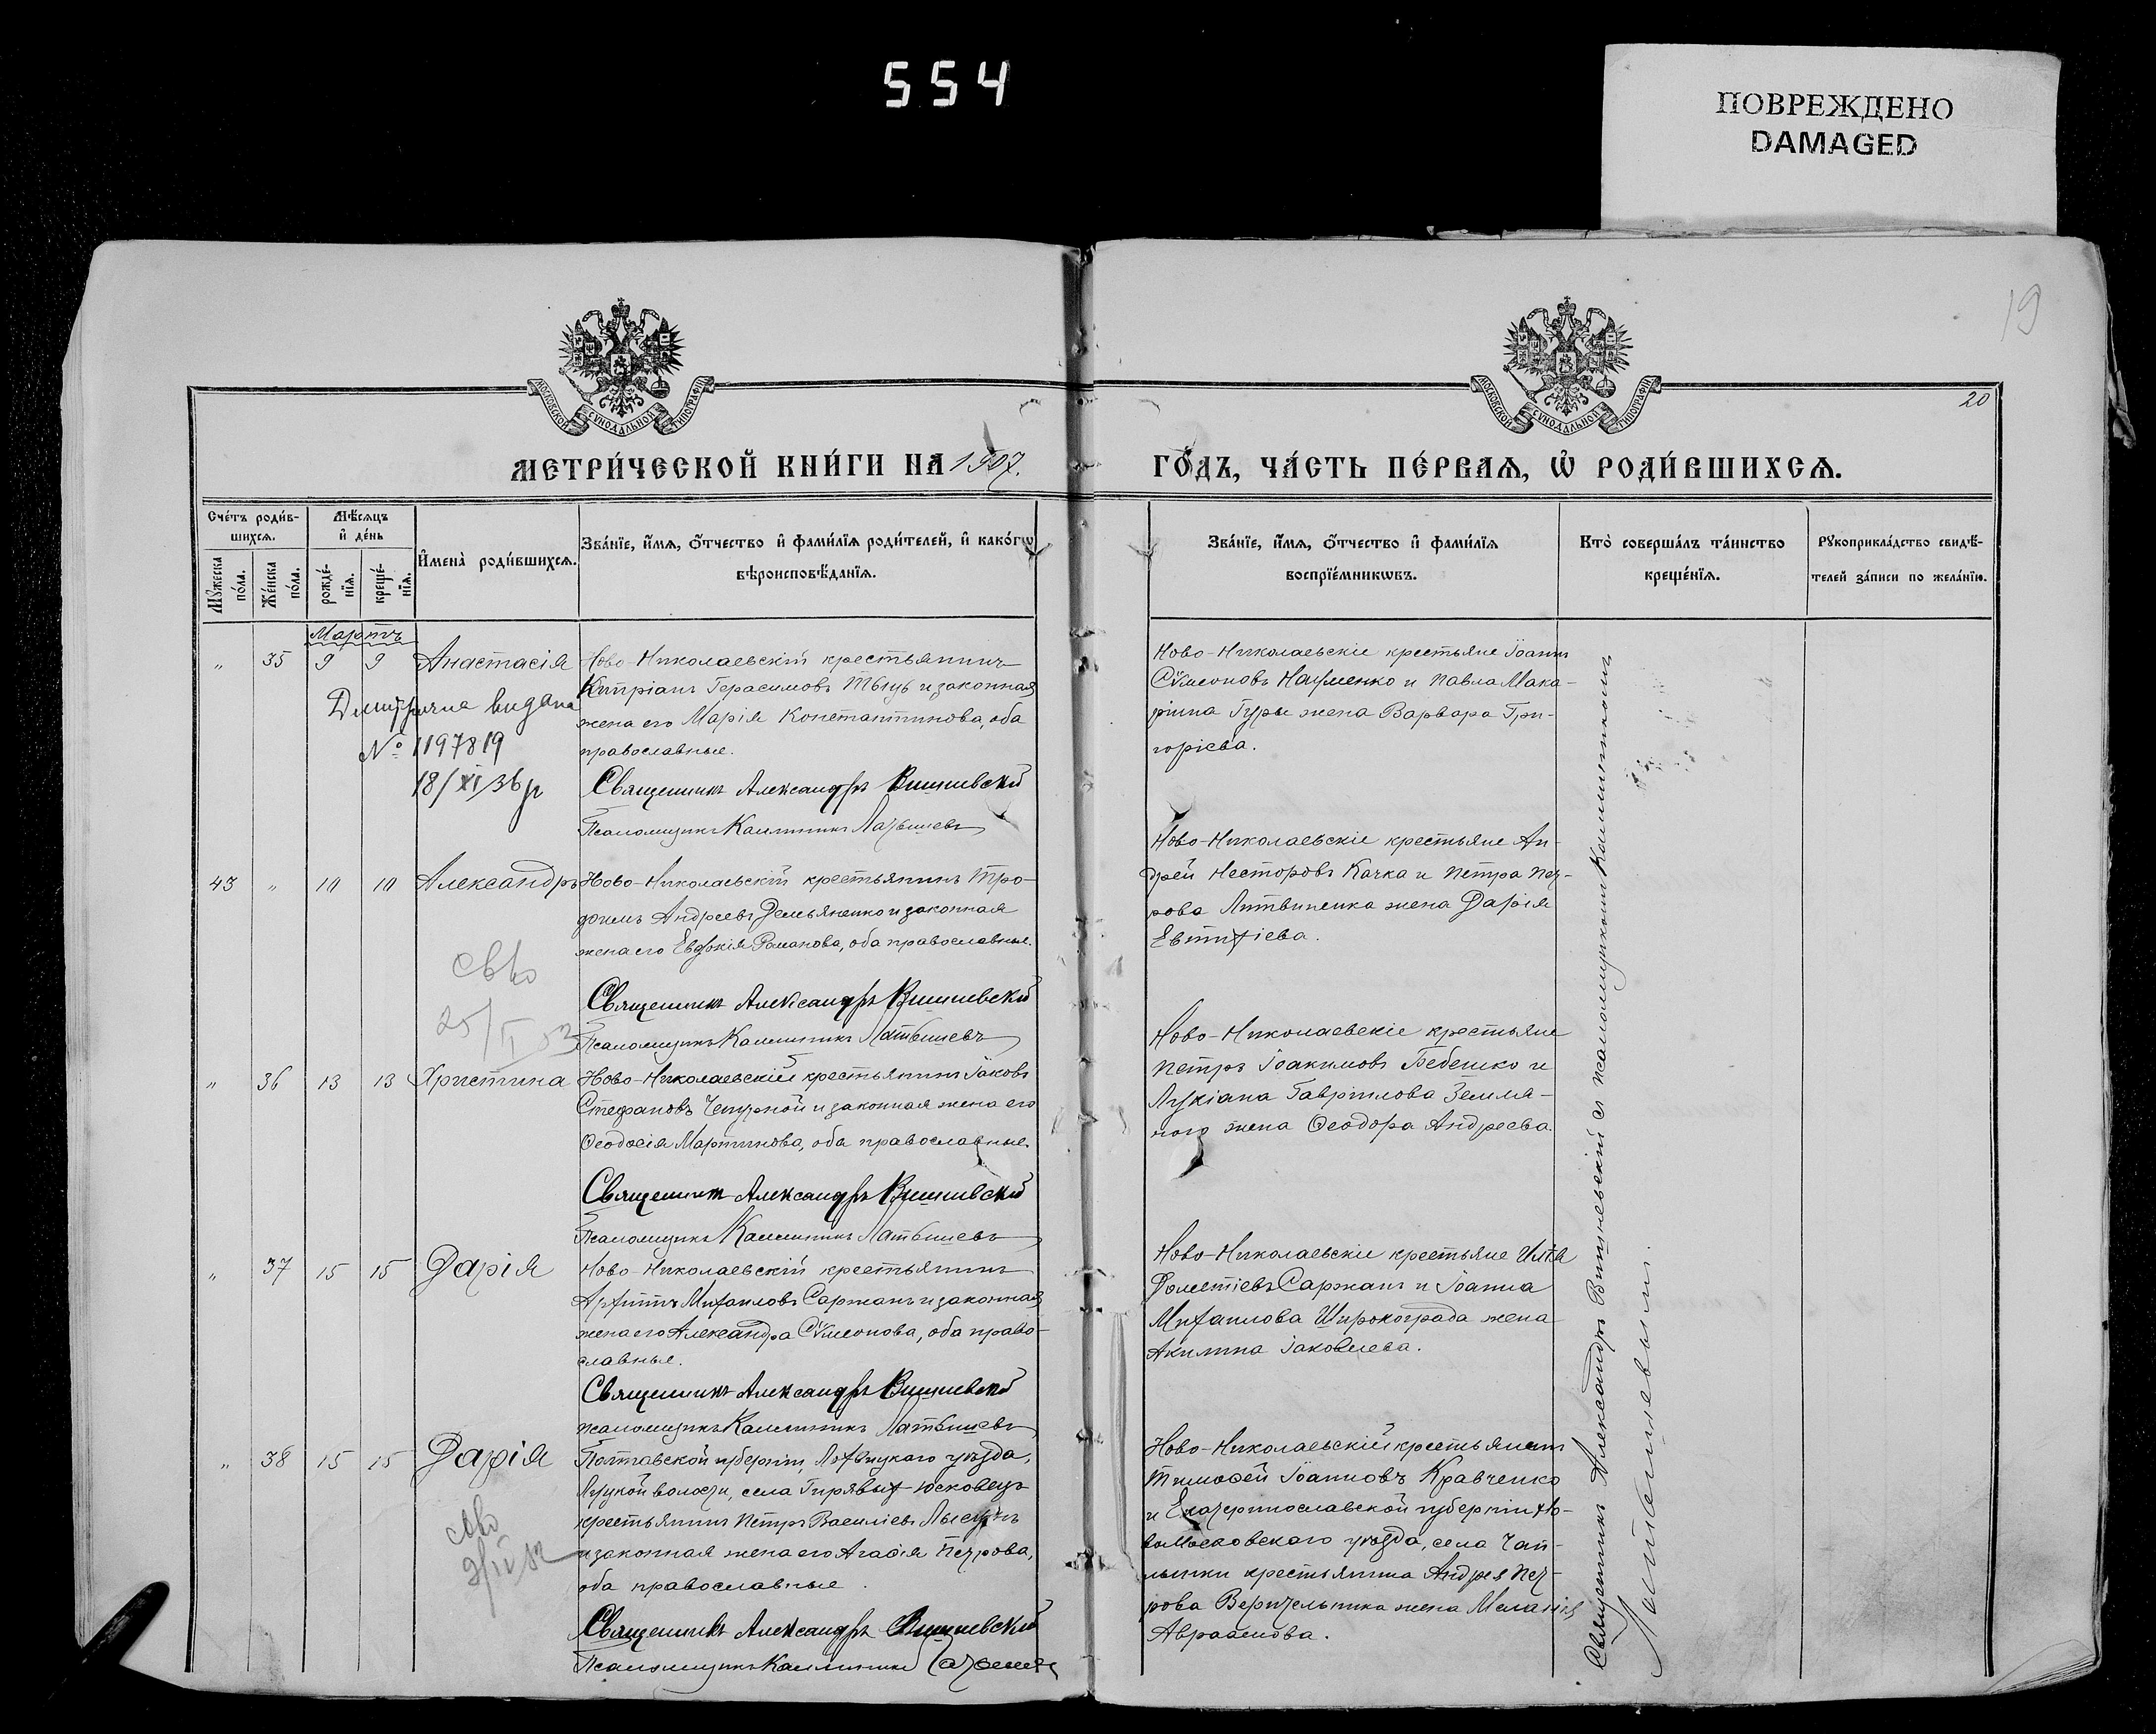 554
ПОВРЕЖДЕНО
DAMAGED
19
20
МОСКОВСКОЙ СѴНОДАЛЬНОЙ ТИПОГРАФІИ
МОСКОВСКОЙ СѴНОДАЛЬНОЙ ТИПОГРАФІИ
МЕТРИ́ЧЕСКОЙ КНИ́ГИ НА 1907.
ГО́ДЪ, ЧА́СТЬ ПЕ́РВАѦ, Ѽ РОДИ́ВШИХСѦ.
Сче́тъ роди́в-
шихсѧ.
Мѣ́сѧцъ
и҆ де́нь
Мꙋ́жеска по́ла.
Же́нска по́ла.
рожде́-нїѧ.
креще́-нїѧ.
И҆мена̀ роди́вшихсѧ.
Зва́нїе, и҆́мѧ, ѻ҆́тчество и҆ фами́лїѧ роди́телей, и҆ како́гѡ
вѣроисповѣ́данїѧ.
Зва́нїе, и҆́мѧ, ѻ҆́тчество и҆ фами́лїѧ
воспрїе́мникѡвъ.
Кто̀ соверша́лъ та́инство
креще́нїѧ.
Рꙋкоприкла́дство свидѣ́-
телей за́писи по жела́нїю.
Мартъ
„ 35 9 9 Анастасія
Ново-Николаевскій крестьянинъ
Кипріанъ Герасимовъ и законная
жена его Марія Константинова, оба
православные.
Священникъ Александръ Вишневскій
Псаломщикъ Каллиникъ Латышевъ
видана
№ 1197819
18/XI 36 р
Ново-Николаевскіе крестьяне Іоаннъ
Сѵмеоновъ Науменко и Павла Мака-
рина Гуры жена Варвара Гри-
горіева.
43 „ 10 10 Александръ
Ново-Николаевскій крестьянинъ Тро-
фимъ Андреевъ Демьяненко и законная
жена его Евдокія Романова, оба православные.
Священникъ Александръ Вишневскій
Псаломщикъ Каллиникъ Латышевъ
Ново-Николаевскіе крестьяне Ан-
дрей Несторовъ Качка и Петра Пет-
рова Литвиненка жена Дарія
Евтихіева.
„ 36 13 13 Христина
Ново-Николаевскій крестьянинъ Іаковъ
Стефановъ Чепурной и законная жена его
Ѳеодосія Мартинова, оба православные.
Священникъ Александръ Вишневскій
Псаломщикъ Каллиникъ Латышевъ
Ново-Николаевскіе крестьяне
Петръ Іоакимовъ Бебешко и
Лукіана Гавриилова Земля-
ного жена Ѳеодора Андреева.
„ 37 15 15 Дарія
Ново-Николаевскій крестьянинъ
Архиппъ Михаиловъ Саржанъ и законная
жена его Александра Сѵмеонова, оба право-
славные.
Священникъ Александръ Вишневскій
Псаломщикъ Каллиникъ Латышевъ
Ново-Николаевскіе крестьяне Илія
Дометіевъ Саржанъ и Іоанна
Михаилова Широкограда жена
Акилина Іаковлева.
„ 38 15 15 Дарія
Полтавской губерніи, Лохвицкаго уѣзда,
Луцкой волости, села Гирявыхъ-Исковецъ
крестьянинъ Петръ Василіевъ
и законная жена его Агаѳія Петрова,
оба православные.
Священникъ Александръ Вишневскій
Псаломщикъ Каллиникъ Латышевъ
Ново-Николаевскій крестьянинъ
Тимоѳей Іоанновъ Кравченко
и Екатеринославской губерніи Но-
вомосковскаго уѣзда, села Чап-
линки крестьянина Андрея Пет-
рова Веретельника жена Меланія
Авраамова.
Священникъ Александръ Вишневскій съ псаломщикомъ Каллиникомъ
Латышевымъ.